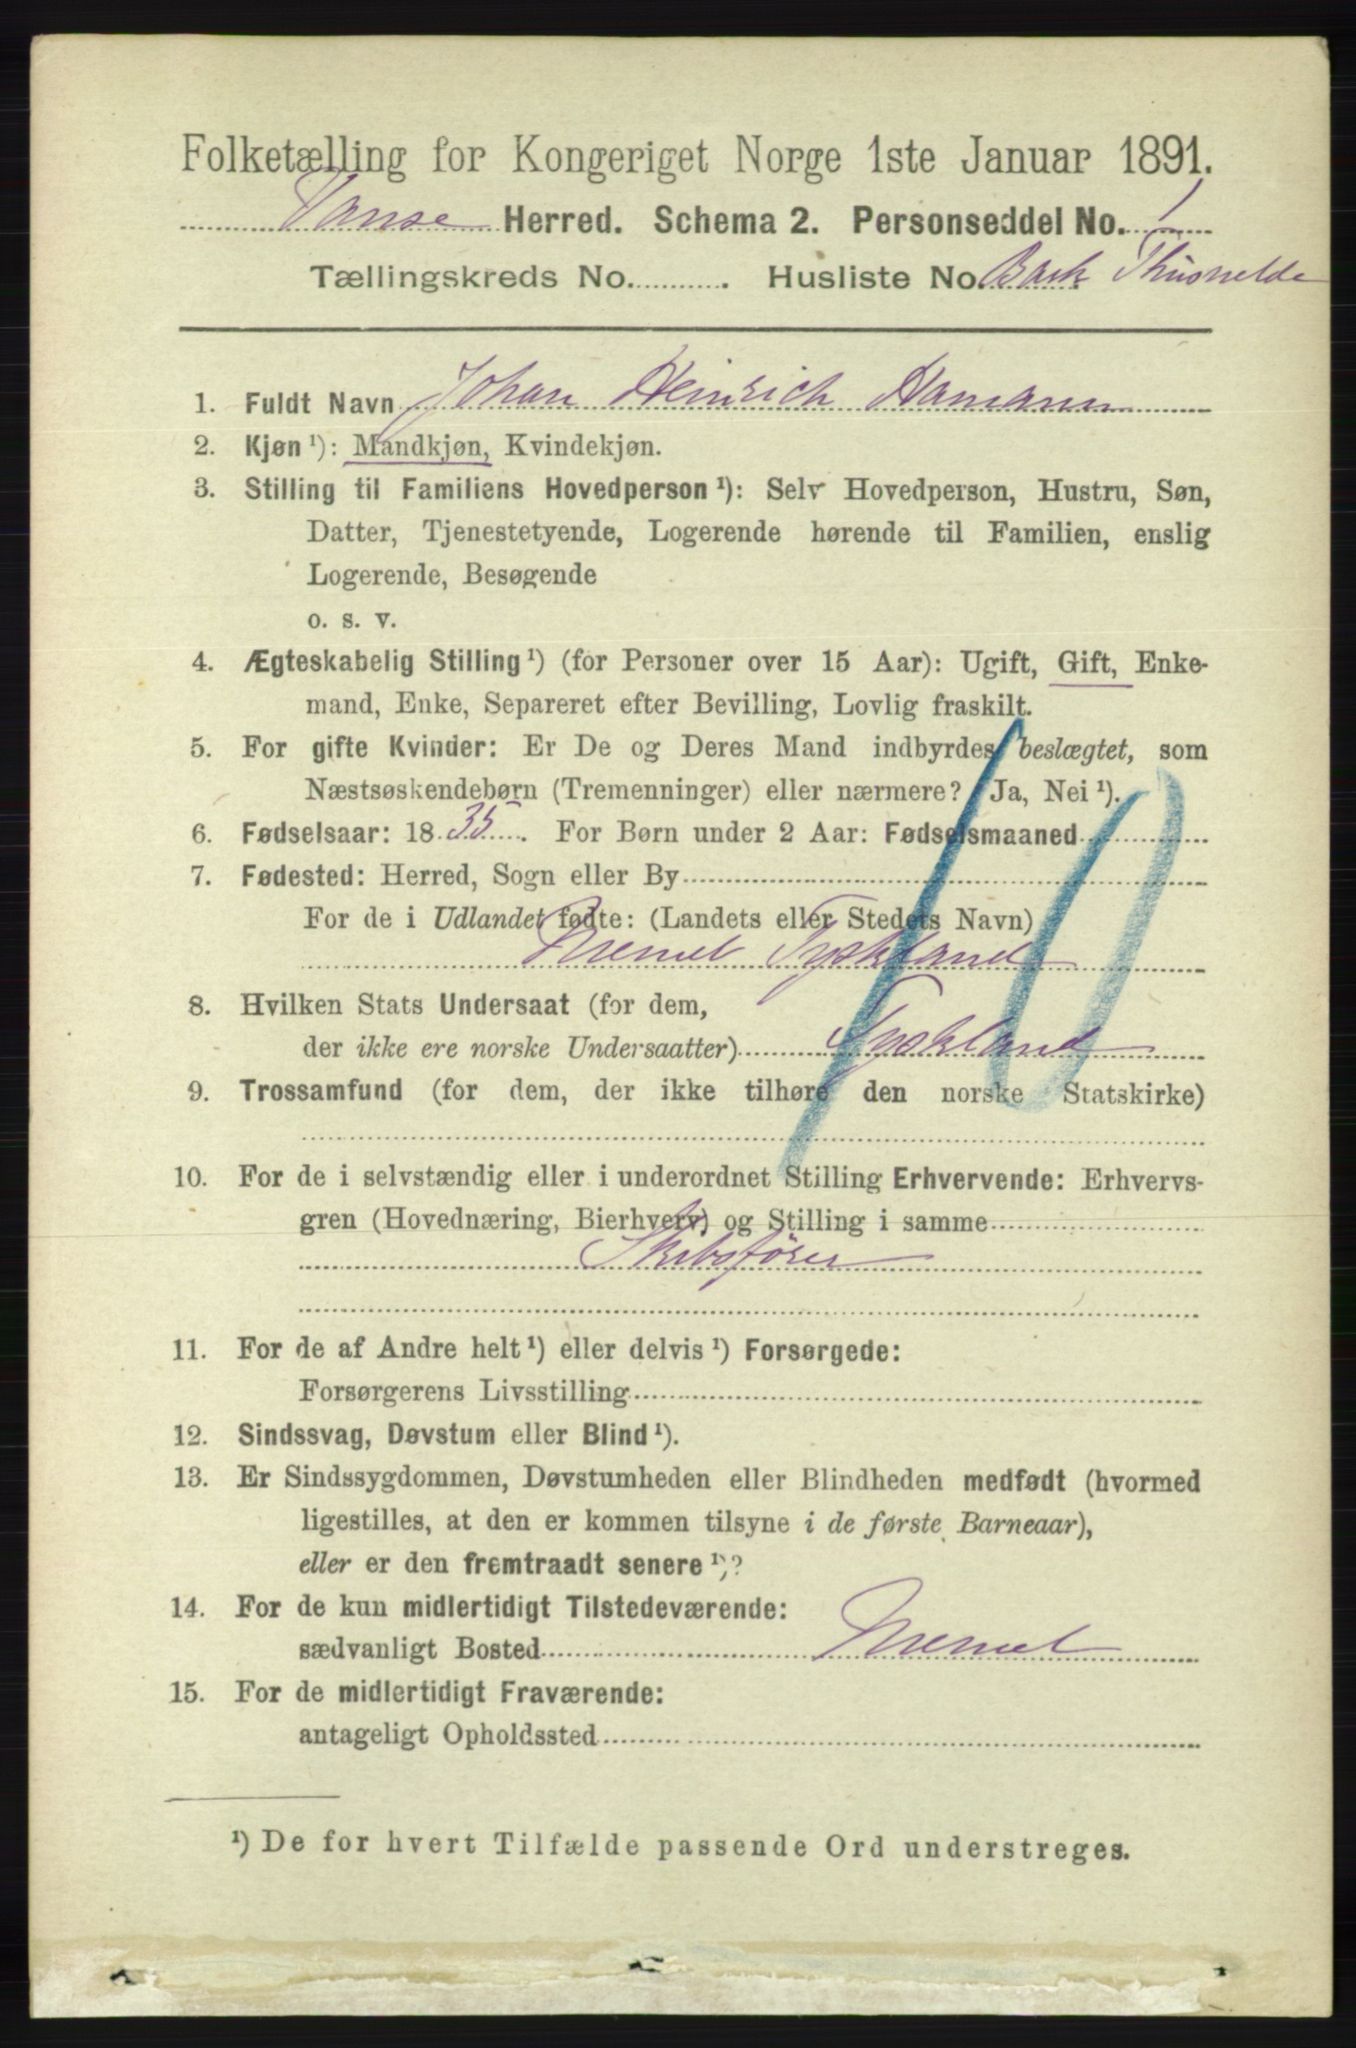 Folketælling for Kongeriget Norge 1ste Januar 1891.
Vanse Herred. Schema 2. Personseddel No. 1
Tællingskreds No. . Husliste No. Bark Thusnelda
1. Fuldt Navn Johan Heinrich Hamann
2. Kjøn ¹): Mandkjøn, Kvindekjøn.
3. Stilling til Familiens Hovedperson ¹): Selv Hovedperson, Hustru, Søn,
Datter, Tjenestetyende, Logerende hørende til Familien, enslig
Logerende, Besøgende
o. s. v.
4. Ægteskabelig Stilling ¹) (for Personer over 15 Aar): Ugift, Gift, Enke-
mand, Enke, Separeret efter Bevilling, Lovlig fraskilt.
5. For gifte Kvinder: Er De og Deres Mand indbyrdes beslægtet, som
Næstsøskendebørn (Tremenninger) eller nærmere? Ja, Nei ¹).
6. Fødselsaar: 1835. For Børn under 2 Aar: Fødselsmaaned
7. Fødested: Herred, Sogn eller By
For de i Udlandet fødte: (Landets eller Stedets Navn)
Memel Tyskland
8. Hvilken Stats Undersaat (for dem,
der ikke ere norske Undersaatter) Tyskland
9. Trossamfund (for dem, der ikke tilhøre den norske Statskirke)
10
10. For de i selvstændig eller i underordnet Stilling Erhvervende: Erhvervs-
gren (Hovednæring, Bierhverv) og Stilling i samme
Skibsfører
11. For de af Andre helt ¹) eller delvis ¹) Forsørgede:
Forsørgerens Livsstilling
12. Sindssvag, Døvstum eller Blind ¹).
13. Er Sindssygdommen, Døvstumheden eller Blindheden medfødt (hvormed
ligestilles, at den er kommen tilsyne i de første Barneaar),
eller er den fremtraadt senere ¹)?
14. For de kun midlertidigt Tilstedeværende:
sædvanligt Bosted Memel
15. For de midlertidigt Fraværende:
antageligt Opholdssted
¹) De for hvert Tilfælde passende Ord understreges.